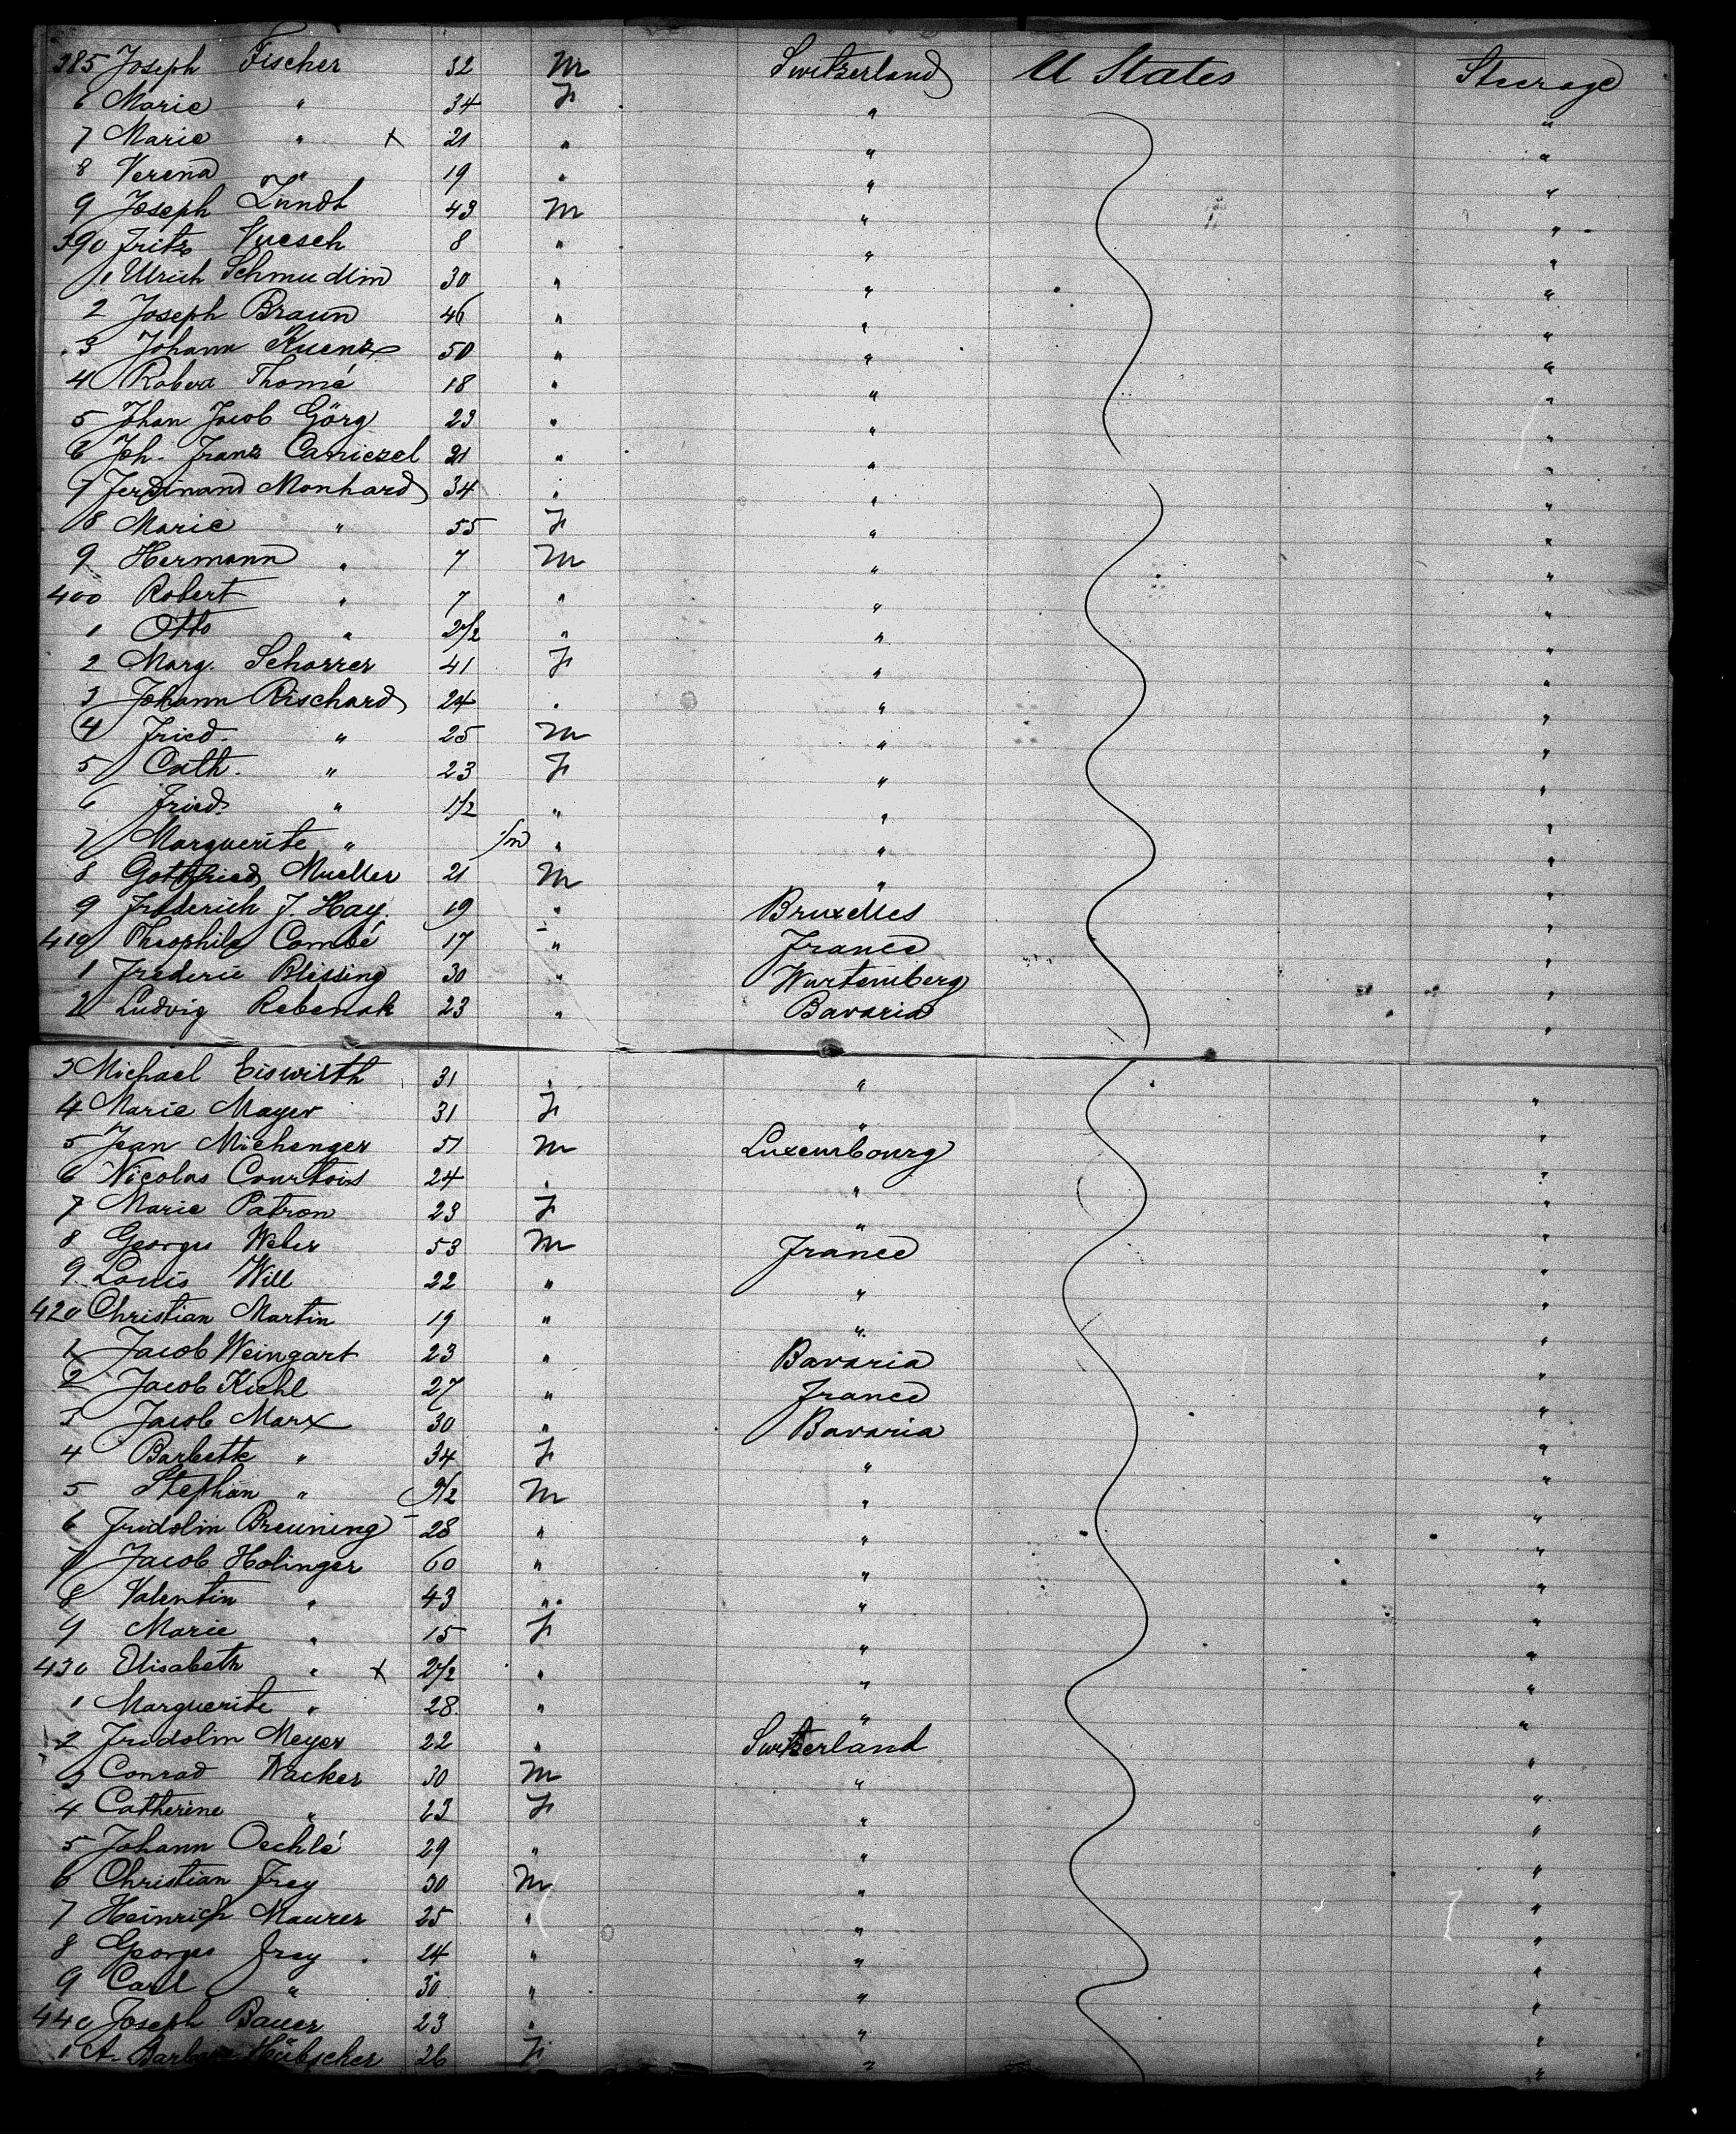 385 Joseph Fischer 32 M Switzerland U States Steerage
6 Marie " 34 F " "
7 Marie " x 21 " " "
8 Verena " 19 " " "
9 Joseph Zundt 43 M " "
390 Fritz Vuesch 8 " " "
1 Ulrich Schmudlin 30 " " "
2 Joseph Braun 46 " " "
3 Johann Kuenz 50 " " "
4 Robert Thomé 18 " " "
5 Johan Jacob Görg 23 " " "
6 Joh. Franz Caniezel 21 " " "
7 Ferdinand Monhard 34 " " "
8 Marie " 55 F " "
9 Hermann " 7 M " "
400 Robert " 7 " " "
1 Otto " 2/2 " " "
2 Marg. Scharrer 41 F " "
3 Johann Rischard 24 " " "
4 Fried. " 25 M " "
5 Cath. " 23 F " "
6 Fried. " 1/2 " " "
7 Marguerite " /m " " "
8 Gottfried Mueller 21 M " "
9 Frederich J. Hay. 19 " Bruxelles "
410 Theophile Combé 17 " France "
1 Frederic Blessing 30 " Wurtemberg "
2 Ludvig Rebenak 23 " Bavaria "
3 Michael Eiswirth 31 " " "
4 Marie Mayer 31 F " "
5 Jean Michenger 51 M Luxembourg "
6 Nicolas Courtois 24 " " "
7 Marie Patron 23 F " "
8 Georges Weber 53 M France "
9 Louis Will 22 " " "
420 Christian Martin 19 " " "
1 Jacob Weingart 23 " Bavaria "
2 Jacob Kiehl 27 " France "
3 Jacob Marx 30 " Bavaria "
4 Barbette " 34 F " "
5 Stephan " 9/2 M " "
6 Fridolin Breuning 28 " " "
7 Jacob Holinger 60 " " "
8 Valentin " 43 " " "
9 Marie " 15 F " "
430 Elisabeth " x 2/2 " " "
1 Marguerite " 28 " " "
2 Fridolin Meyer 22 " Switzerland "
3 Conrad Wacker 30 M " "
4 Catherine " 23 F " "
5 Johann Oechlé 29 " " "
6 Christian Frey 30 M " "
7 Heinrich Maurer 25 " " "
8 Georges Frey 24 " " "
9 Carl " 30 " " "
440 Joseph Bauer 23 " " "
1 A. Barbara Hübscher 26 F " "